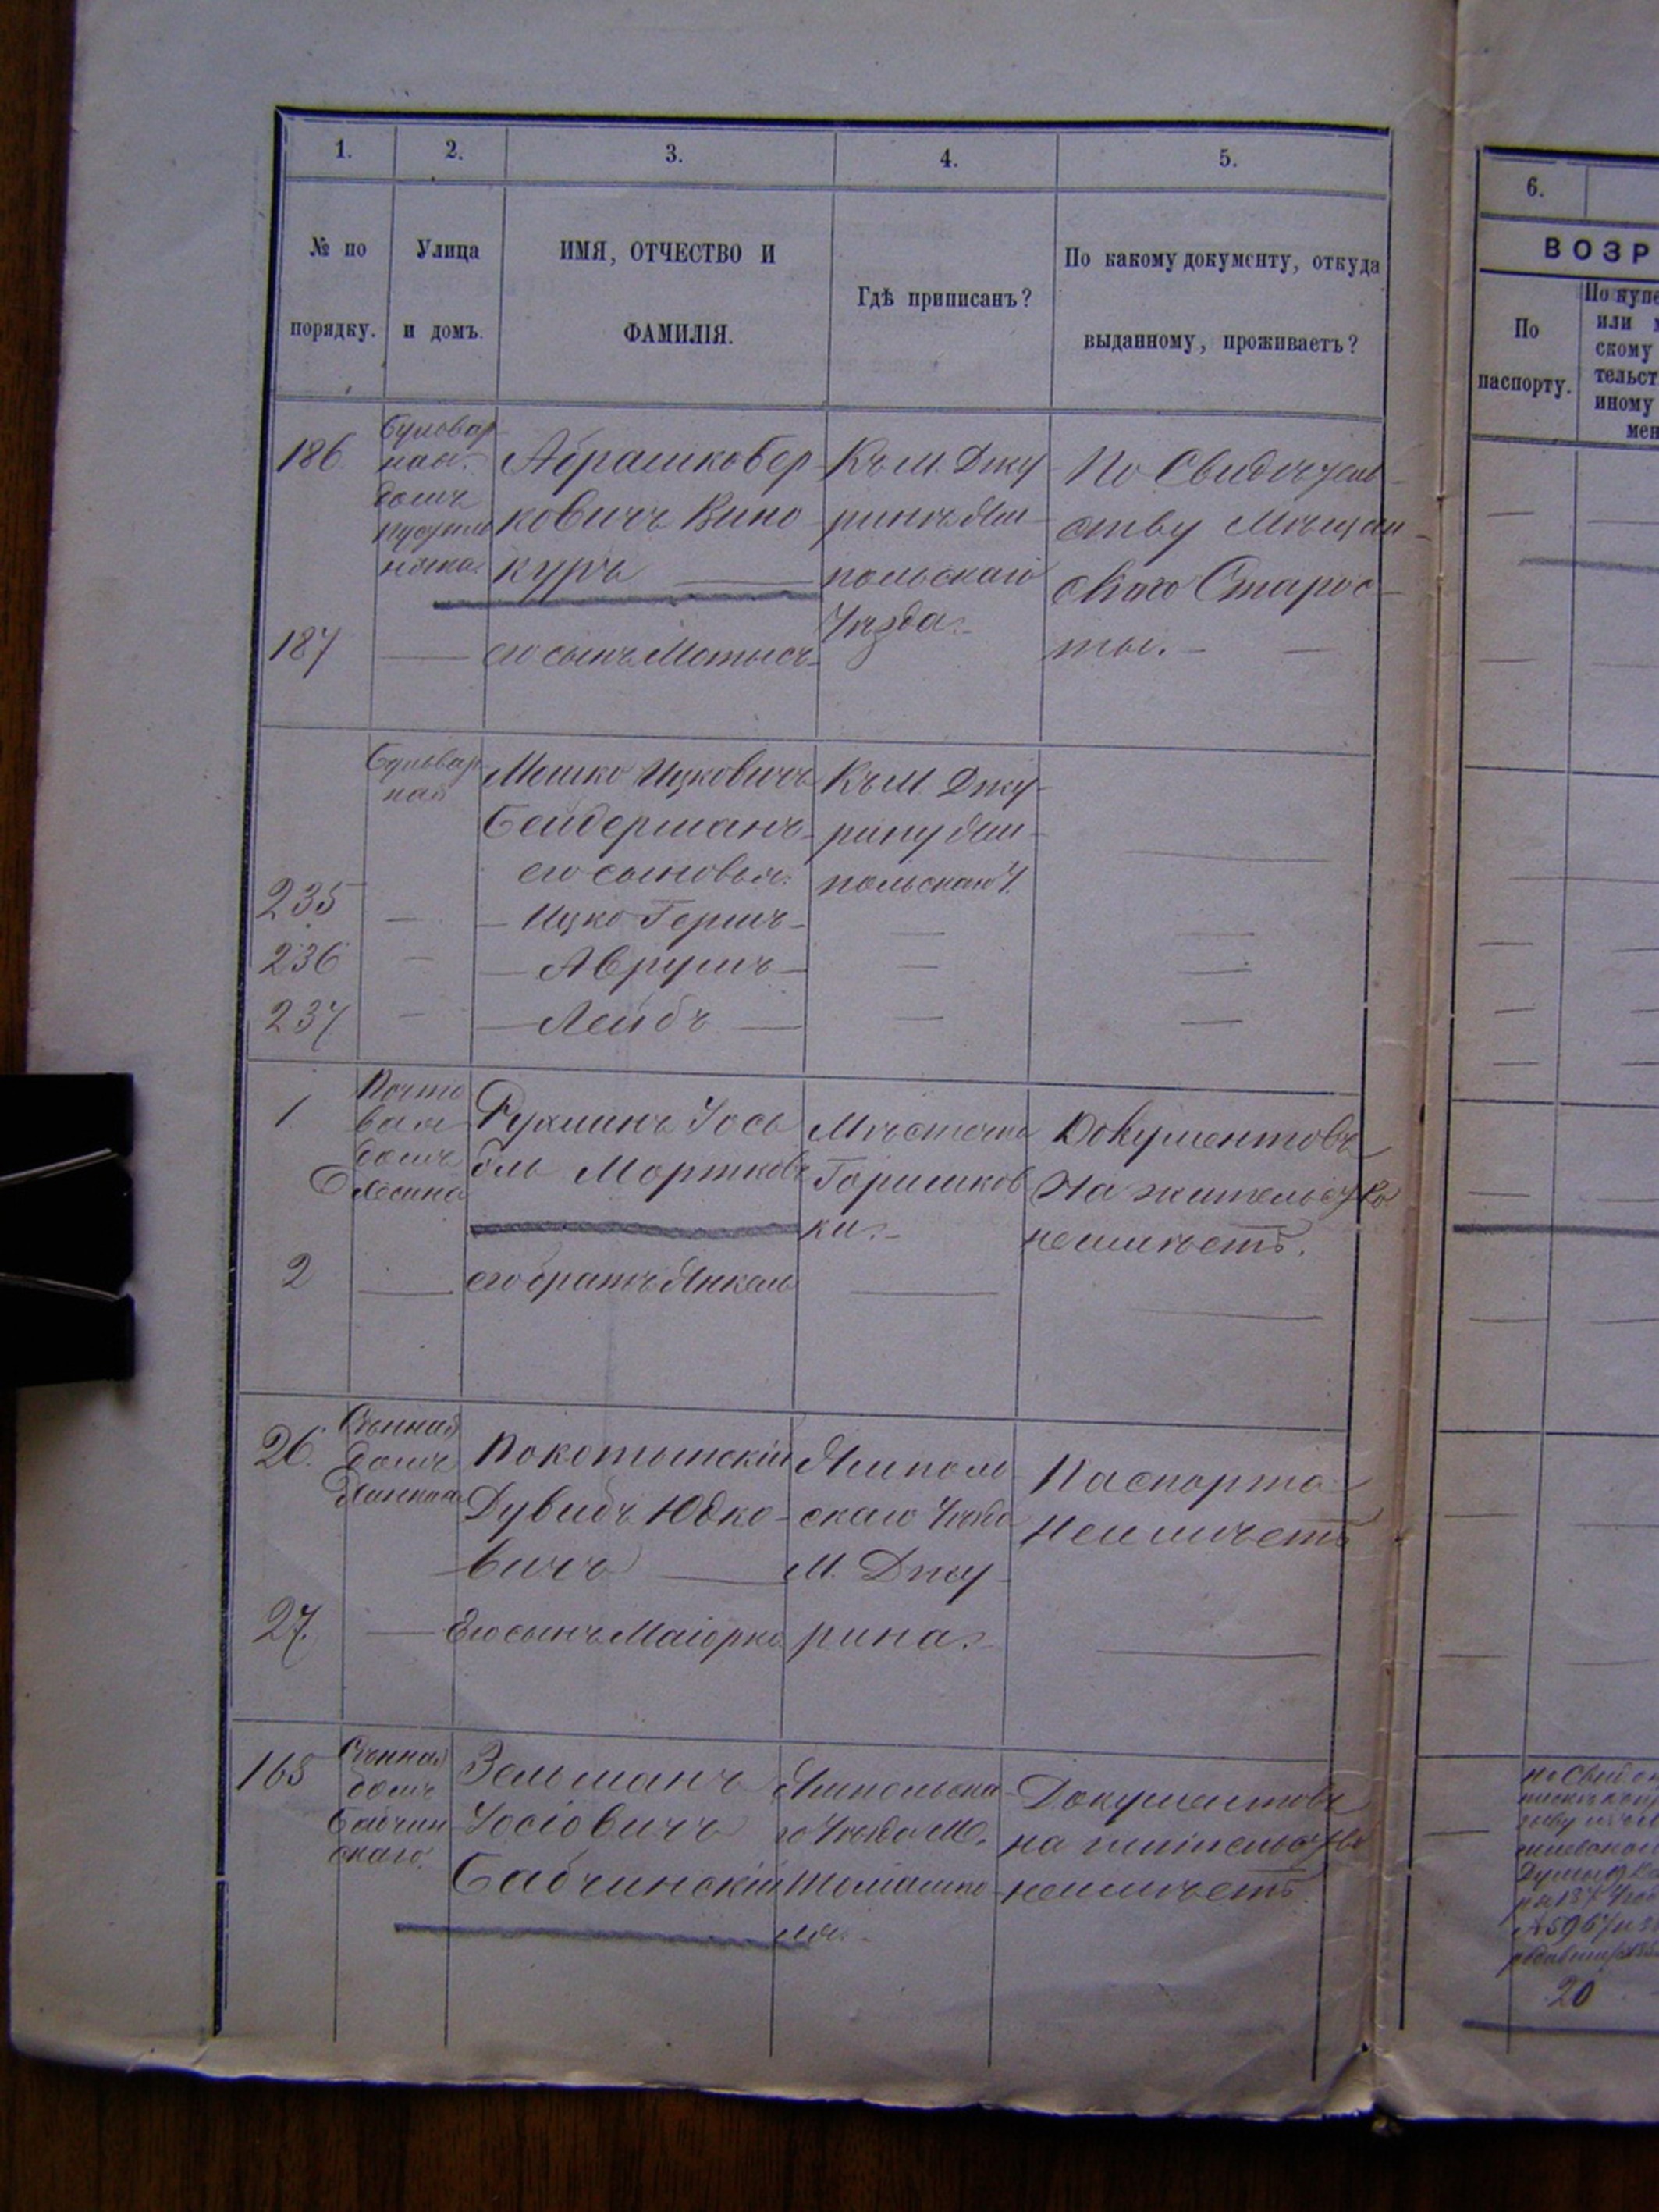 1. 2. 3. 4. 5.
№ по порядку.
Улица и домъ.
ИМЯ, ОТЧЕСТВО И ФАМИЛІЯ.
Гдѣ приписанъ?
По какому документу, откуда
выданному, проживаетъ?
6.
ВОЗР
По
паспорту.
По купе
или
скому
тельст
иному
мен
186.
Бульвар
ная.
домъ
Абрамко Бер
ковичъ Вино
куръ
Къ М. Джу
ринъ Ям
польскаго
Уѣзда.
По Свидѣтель
ству Мѣщан
скаго Старос
ты.
187
его сынъ Мотысъ
Бульвар
ная
Мошко Ицковичъ
Бейдерманъ
его сыновья:
Къ М. Джу
рину Ям
польскаго У.
235
Ицко Гершъ
236
Аврумъ
237
Лейбъ
1
Почто
вая
домъ
Рухлинъ Іось
Мортков
Мѣстечка
Горишков
ки.
Документовъ
На жительство
неимѣетъ.
2
его братъ Янкель
26.
Сѣнная
домъ
Покотынскій
Дувидъ Юдко
вичъ
Ямполь
скаго Уѣзда
М. Джу
рина.
Паспорта
Неимѣетъ
27.
Его сынъ Маіорко
165
Сѣнная
домъ
Бабчин
скаго.
Зельманъ
Іосіовичъ
Бабчинскій
Ямпольска
го Уѣзда М.
Томашпо
ля.
Документовъ
на жительство
неимѣетъ.
по Свид
Думы
20